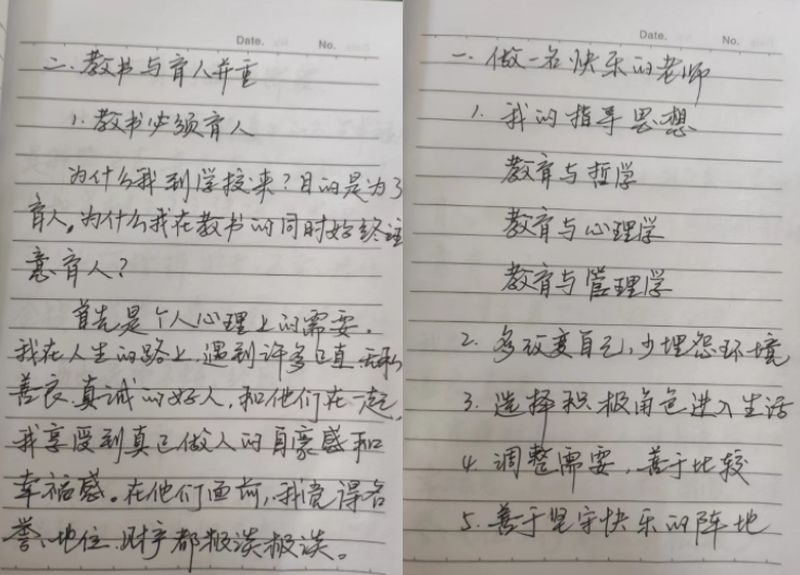 Date. No.
二、教书与育人并重
1. 教书必须育人
为什么我到学校来？目的是为了
育人。为什么我在教书的同时始终注
意育人？
首先是个人心理上的需要。
我在人生的路上，遇到许多正直、无私、
善良、真诚的好人，和他们在一起，
我享受到真正做人的自豪感和
幸福感。在他们面前，我觉得名
誉、地位、财产都极淡极淡。
Date. No.
一、做一名快乐的老师
1. 我的指导思想
教育与哲学
教育与心理学
教育与管理学
2. 多改变自己，少埋怨环境
3. 选择积极角色进入生活
4. 调整需要，善于比较
5. 善于坚守快乐的阵地